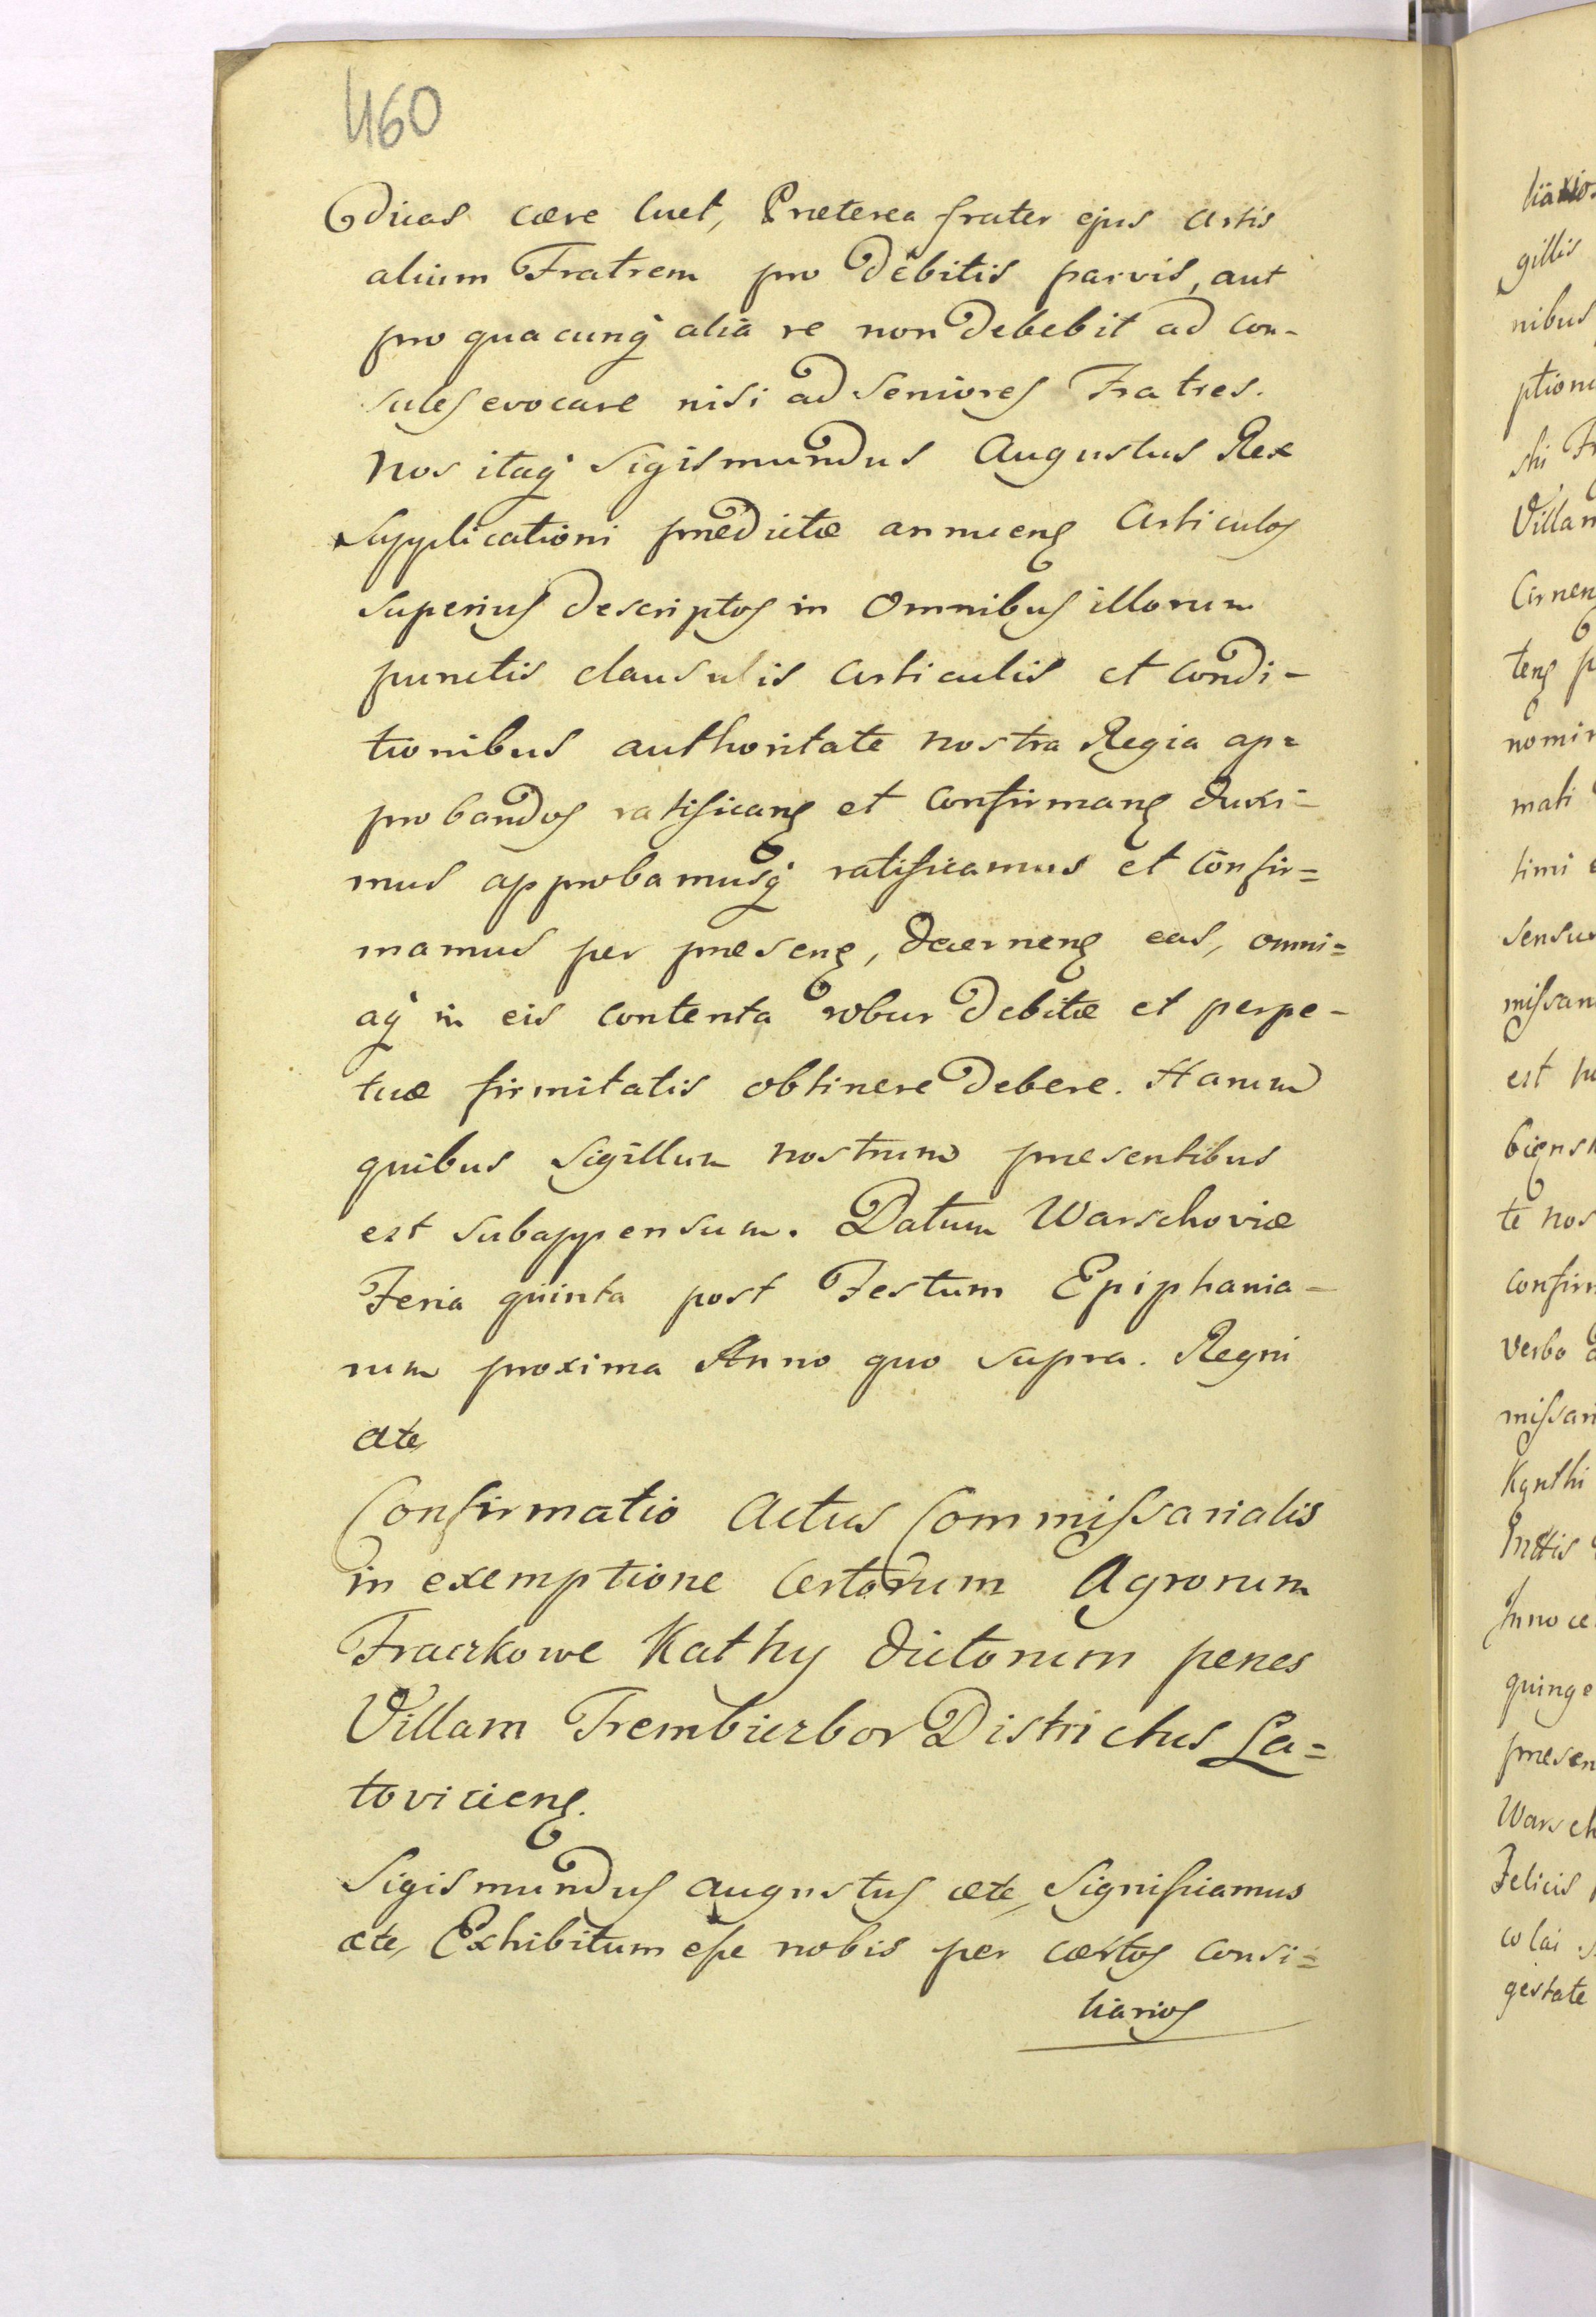 460
dicas cære luet, Præterea frater ejus artis
alium Fratrem pro debitis parvis, aut
pro quacunq̀ alia re non debebit ad con-
sules evocare nisi ad Seniores Fratres.
Nos itaq̀ Sigismundus Augustus Rex
Supplicationi prædictæ annuens Articulos
superius descriptos in Omnibus illorum
punctis clausulis articulis et condi-
tionibus authoritate nostra Regia ap=
probandos ratificans et confirmans duxi-
mus approbamusq̀ ratificamus et confir=
mamus per præsens, decernens eas, omni=
aq̀ in eis contenta robur debitæ et perpe-
tuæ firmitatis obtinere debere. Harum
quibus Sigillum nostrum præsentibus
est subappensum. Datum Warschoviæ
Feria quinta post Festum Epiphania-
rum proxima Anno quo supra. Regni
ate
Confirmatio Actus Commissarialis
in exemptione certorum Agrorum
Fraczkowe Kathy dictorum penes
Villam Trembiczbor Districtus La=
toviciens.
Sigismundus augustus ete, Significamus
ete, Exhibitum esse nobis per cærtos consi=
liarios
gillis
nibus
mati
est
te nos
verbo
gestate